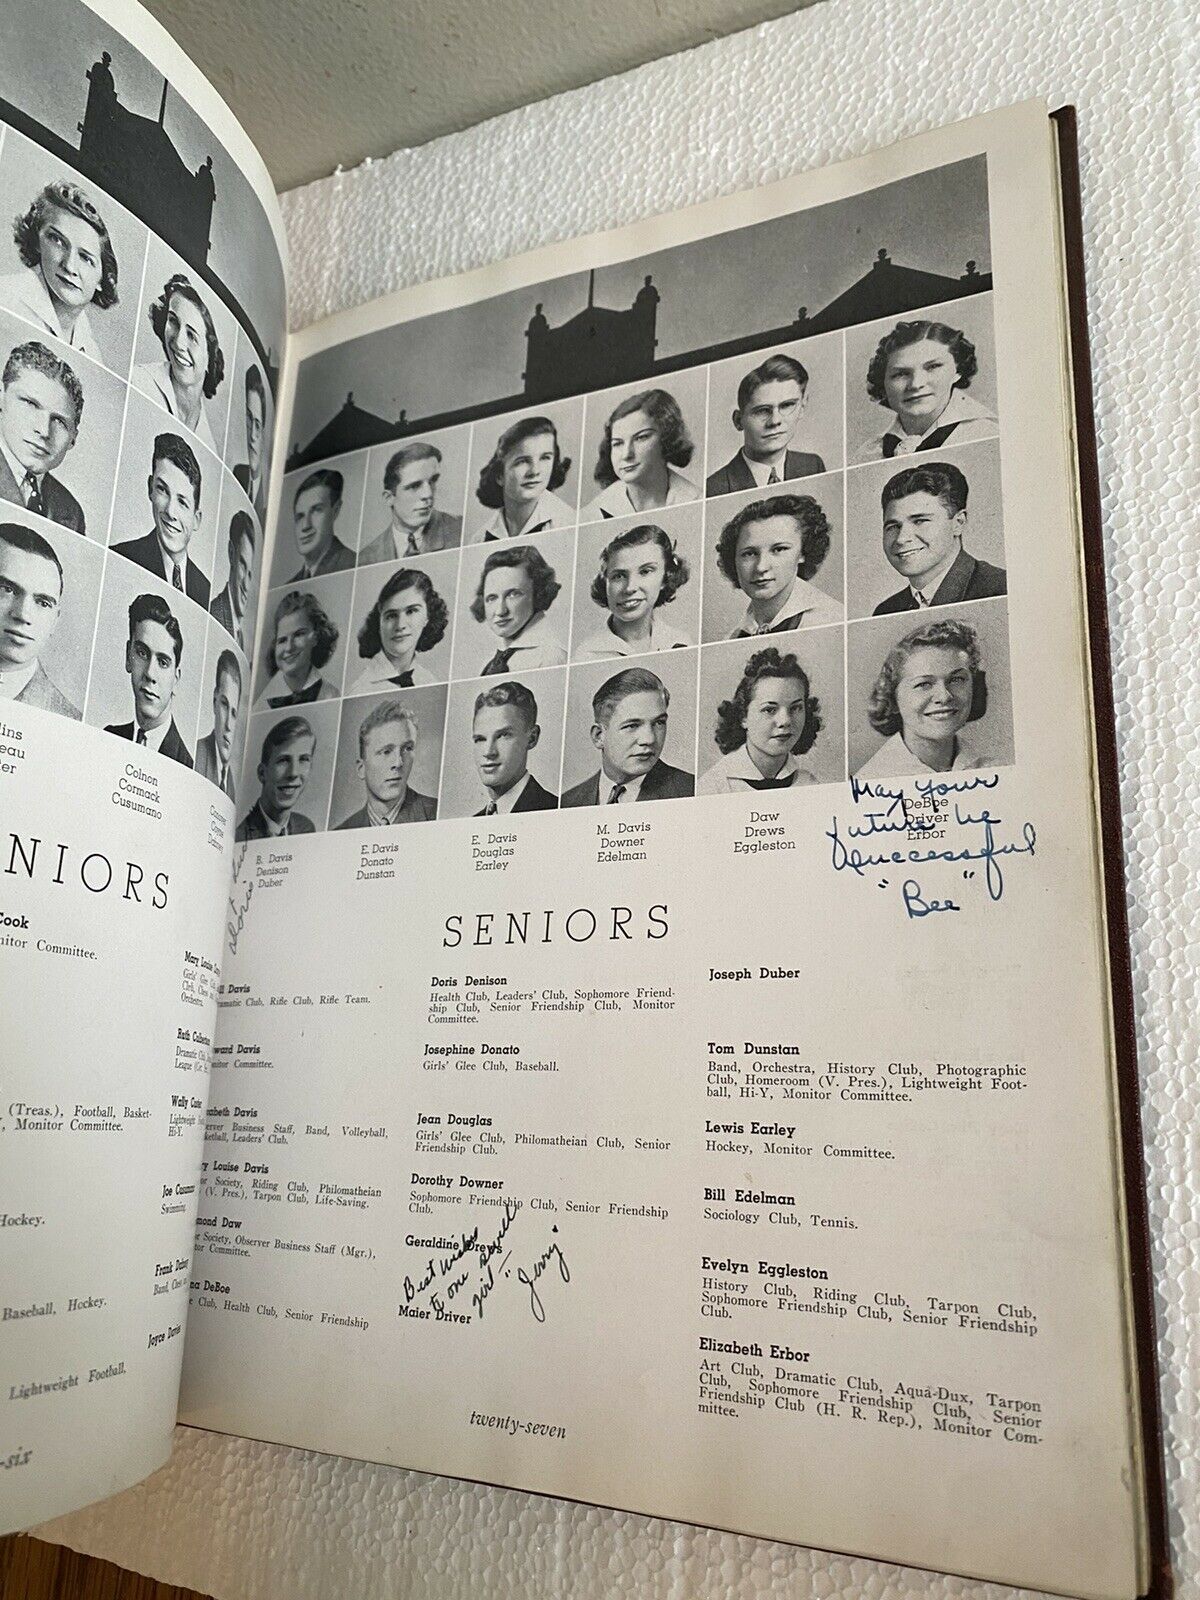 lins
eau
ter
Colnon
Cormack
Cusumano
NIORS
Cook
nitor Committee.
Mary Louise
Girls' Glee
Orchestra.
Ruth
Dramatic
League
(Treas.), Football, Basket-
Y, Monitor Committee.
Wally
Lightweight
Hi-Y.
Joe
Swimming.
Hockey.
Frank
Band,
Baseball, Hockey.
Joyce Davies
Lightweight Football.
-six
B. Davis
Denison
Duber
E. Davis
Donato
Dunstan
E. Davis
Douglas
Earley
M. Davis
Downer
Edelman
Daw
Drews
Eggleston
DeBoe
Driver
Erbor
May your
future be
successful
"Bee"
SENIORS
ll Davis
ramatic Club, Rifle Club, Rifle Team.
ward Davis
onitor Committee.
zabeth Davis
server Business Staff, Band, Volleyball,
ketball, Leaders' Club.
ry Louise Davis
or Society, Riding Club, Philomatheian
(V. Pres.), Tarpon Club, Life-Saving.
mond Daw
or Society, Observer Business Staff (Mgr.),
itor Committee.
na DeBoe
e Club, Health Club, Senior Friendship
Doris Denison
Health Club, Leaders' Club, Sophomore Friend-
ship Club, Senior Friendship Club, Monitor
Committee.
Josephine Donato
Girls' Glee Club, Baseball.
Jean Douglas
Girls' Glee Club, Philomatheian Club, Senior
Friendship Club.
Dorothy Downer
Sophomore Friendship Club, Senior Friendship
Club.
Geraldine Drews
Best wishes
to one swell
girl—
"Jerry"
Maier Driver
Joseph Duber
Tom Dunstan
Band, Orchestra, History Club, Photographic
Club, Homeroom (V. Pres.), Lightweight Foot-
ball, Hi-Y, Monitor Committee.
Lewis Earley
Hockey, Monitor Committee.
Bill Edelman
Sociology Club, Tennis.
Evelyn Eggleston
History Club, Riding Club, Tarpon Club,
Sophomore Friendship Club, Senior Friendship
Club.
Elizabeth Erbor
Art Club, Dramatic Club, Aqua-Dux, Tarpon
Club, Sophomore Friendship Club, Senior
Friendship Club (H. R. Rep.), Monitor Com-
mittee.
twenty-seven